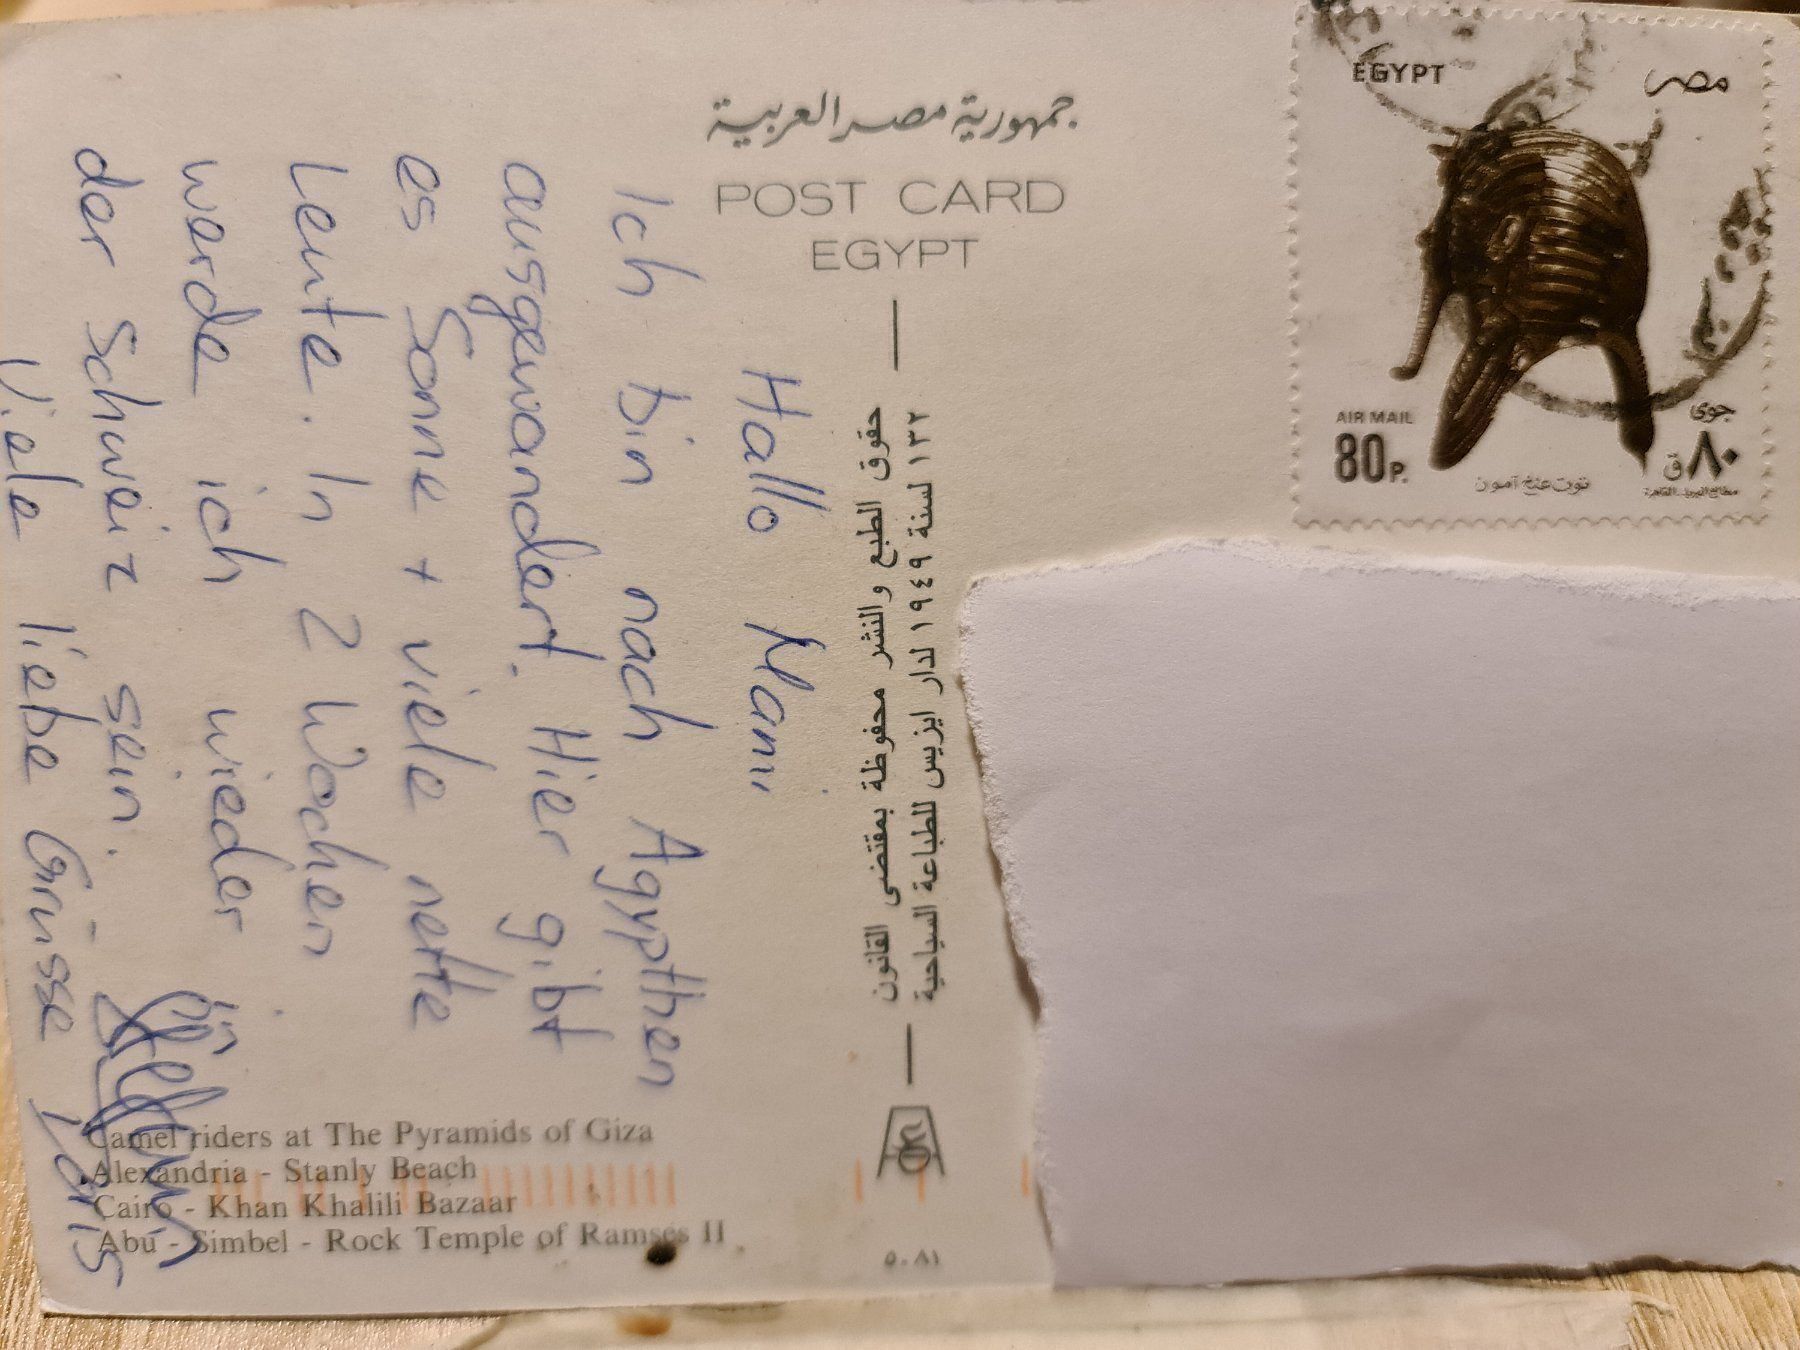 جمهورية مصر العربية
POST CARD
EGYPT
EGYPT
مصر
AIR MAIL
80 P.
جوى
٨٠ ق
توت عنخ آمون
حقوق الطبع والنشر محفوظة بمقتضى القانون
١٣٢ لسنة ١٩٤٩ لدار ايزيس للطباعة السياحية
Hallo Mami
Ich bin nach Agypthen
ausgewandert. Hier gibt
es Sonne + viele nette
Leute. In 2 Wochen
werde ich wieder in
der Schweiz sein.
Viele liebe Grüsse
Loris
Camel riders at The Pyramids of Giza
Alexandria - Stanly Beach
Cairo - Khan Khalili Bazaar
Abu - Simbel - Rock Temple of Ramses II
٥٠٨١